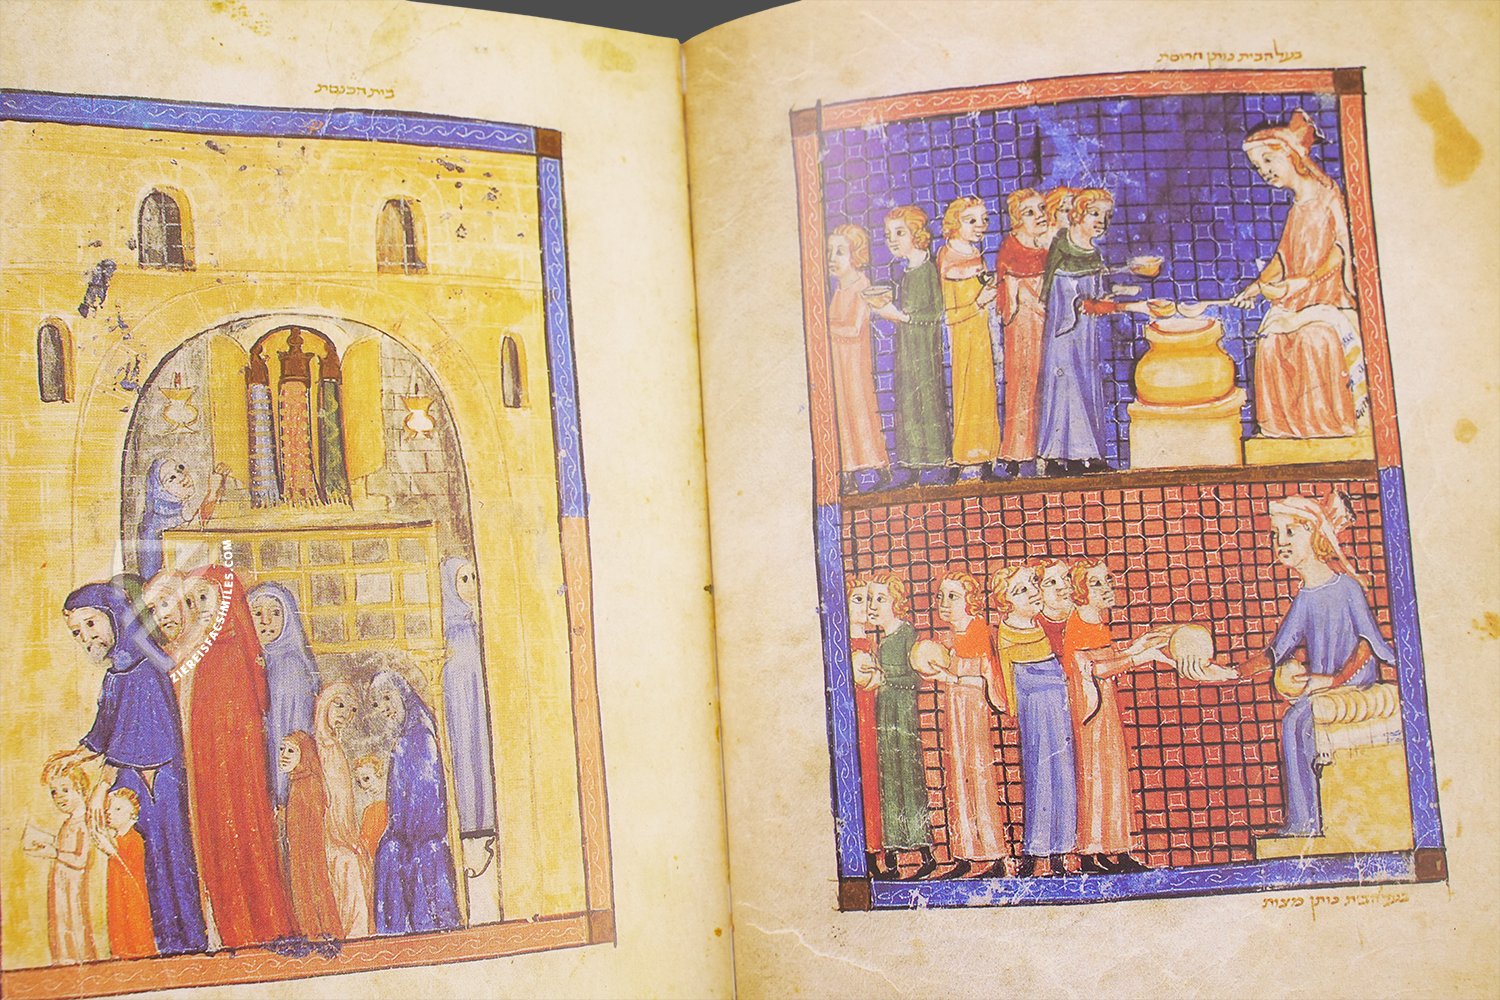 בעל הבית נותן חרוסת
בעל הבית נותן מצות
בית הכנסת
ZIEREISFACSIMILES.COM